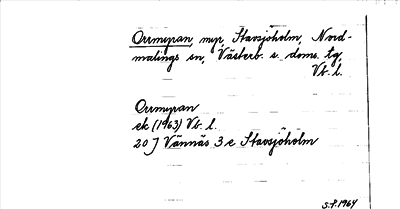 Ormmyran, myr, Stavsjöholm, Nord-
malings sn, Västerb. s. doms. tg,
Vb. l.
Ormmyran
ek (1963) Vb. l.
20 J Vännäs 3 e Stavsjöholm
S.P. 1964